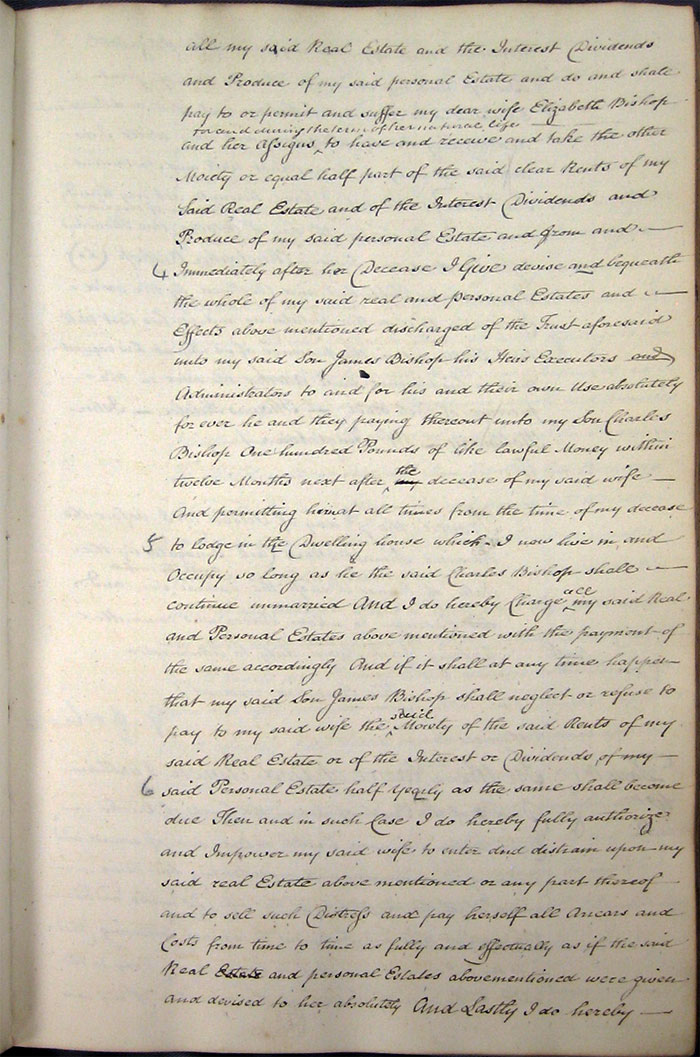 all my said Real Estate and the Interest Dividends
and Produce of my said personal Estate and do and shall
pay to or permit and suffer my dear wife Elizabeth Bishop
for and during the term of her natural life
and her Assigns to have and receive and take the other
Moiety or equal half part of the said clear Rents of my
Said Real Estate and of the Interest Dividends and
Produce of my said personal Estate and from and
4 Immediately after her Decease I Give devise and bequeath
the whole of my said real and personal Estates and
Effects above mentioned discharged of the Trust aforesaid
unto my said Son James Bishop his Heirs Executors and
Administrators to and for his and their own Use absolutely
for ever he and they paying thereout unto my Son Charles
Bishop One hundred Pounds of like lawful Money within
twelve Months next after the decease of my said wife
And permitting him at all times from the time of my decease
5 to lodge in the Dwelling house which I now live in and
Occupy so long as he the said Charles Bishop shall
continue unmarried And I do hereby Charge all my said Real
and Personal Estates above mentioned with the payment of
the same accordingly And if it shall at any time happen
that my said Son James Bishop shall neglect or refuse to
pay to my said wife the said Moiety of the said Rents of my
said Real Estate or of the Interest or Dividends of my
6 said Personal Estate half Yearly as the same shall become
due Then and in such Case I do hereby fully authorize
and Impower my said wife to enter and distrain upon my
said real Estate above mentioned or any part thereof
and to sell such Distress and pay herself all Arrears and
Costs from time to time as fully and effectually as if the said
Real Estate and personal Estates abovementioned were given
and devised to her absolutely And Lastly I do hereby